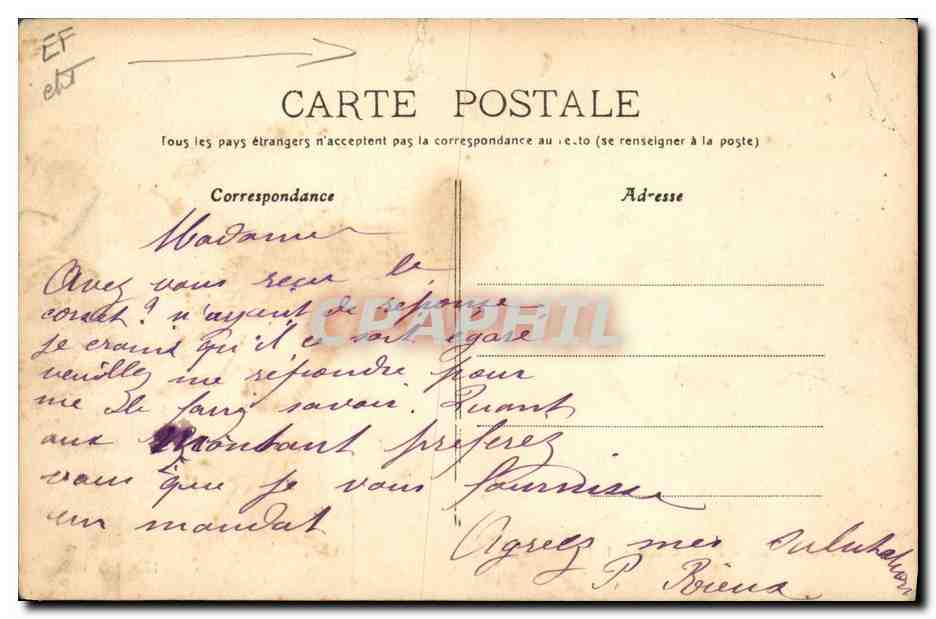 EF
CARTE POSTALE
Tous les pays étrangers n'acceptent pas la correspondance au recto (se renseigner à la poste)
Correspondance
Adresse
Madame
Avez vous reçu le
corset? n'ayant de réponse
je crains qu'il ce soit égaré
veuillez me réfiondre pour
me le faire savoir. Quant
aux montant preferez
vous que je vous fournisse
un mandat
Agreez mes salutation
P. Rieux
CPAPHIL